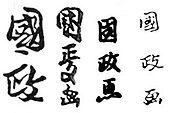 國政画
国政画
國政画
國政